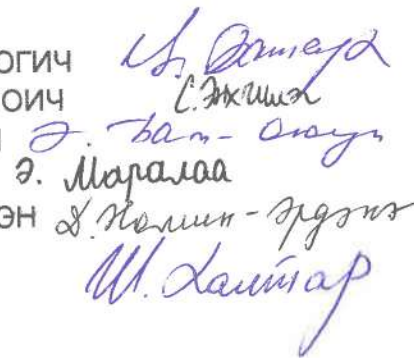 огич
оич С. Энхшинэ
Э. Бат-Оюун
Э. Маралаа
эн Д. Номин-Эрдэнэ
Ш. Халтар